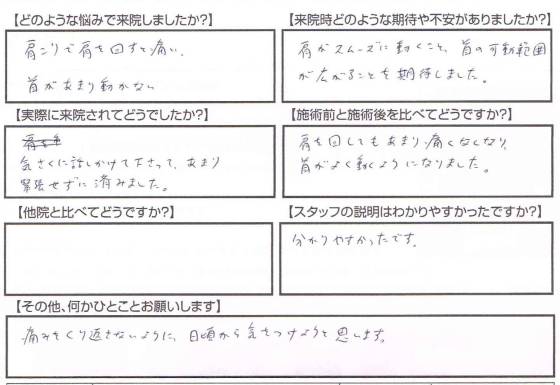 【どのような悩みで来院しましたか?】
肩こりで肩を回すと痛い、
首があまり動かない
【来院時どのような期待や不安がありましたか?】
肩がスムーズに動くこと、首の可動範囲
が広がることを期待しました。
【実際に来院されてどうでしたか?】
気さくに話しかけて下さって、あまり
緊張せずに済みました。
【施術前と施術後を比べてどうですか?】
肩を回してもあまり痛くなくなり、
首がよく動くようになりました。
【他院と比べてどうですか?】
【スタッフの説明はわかりやすかったですか?】
分かりやすかったです。
【その他、何かひとことお願いします】
痛みをくり返さないように、日頃から気をつけようと思います。